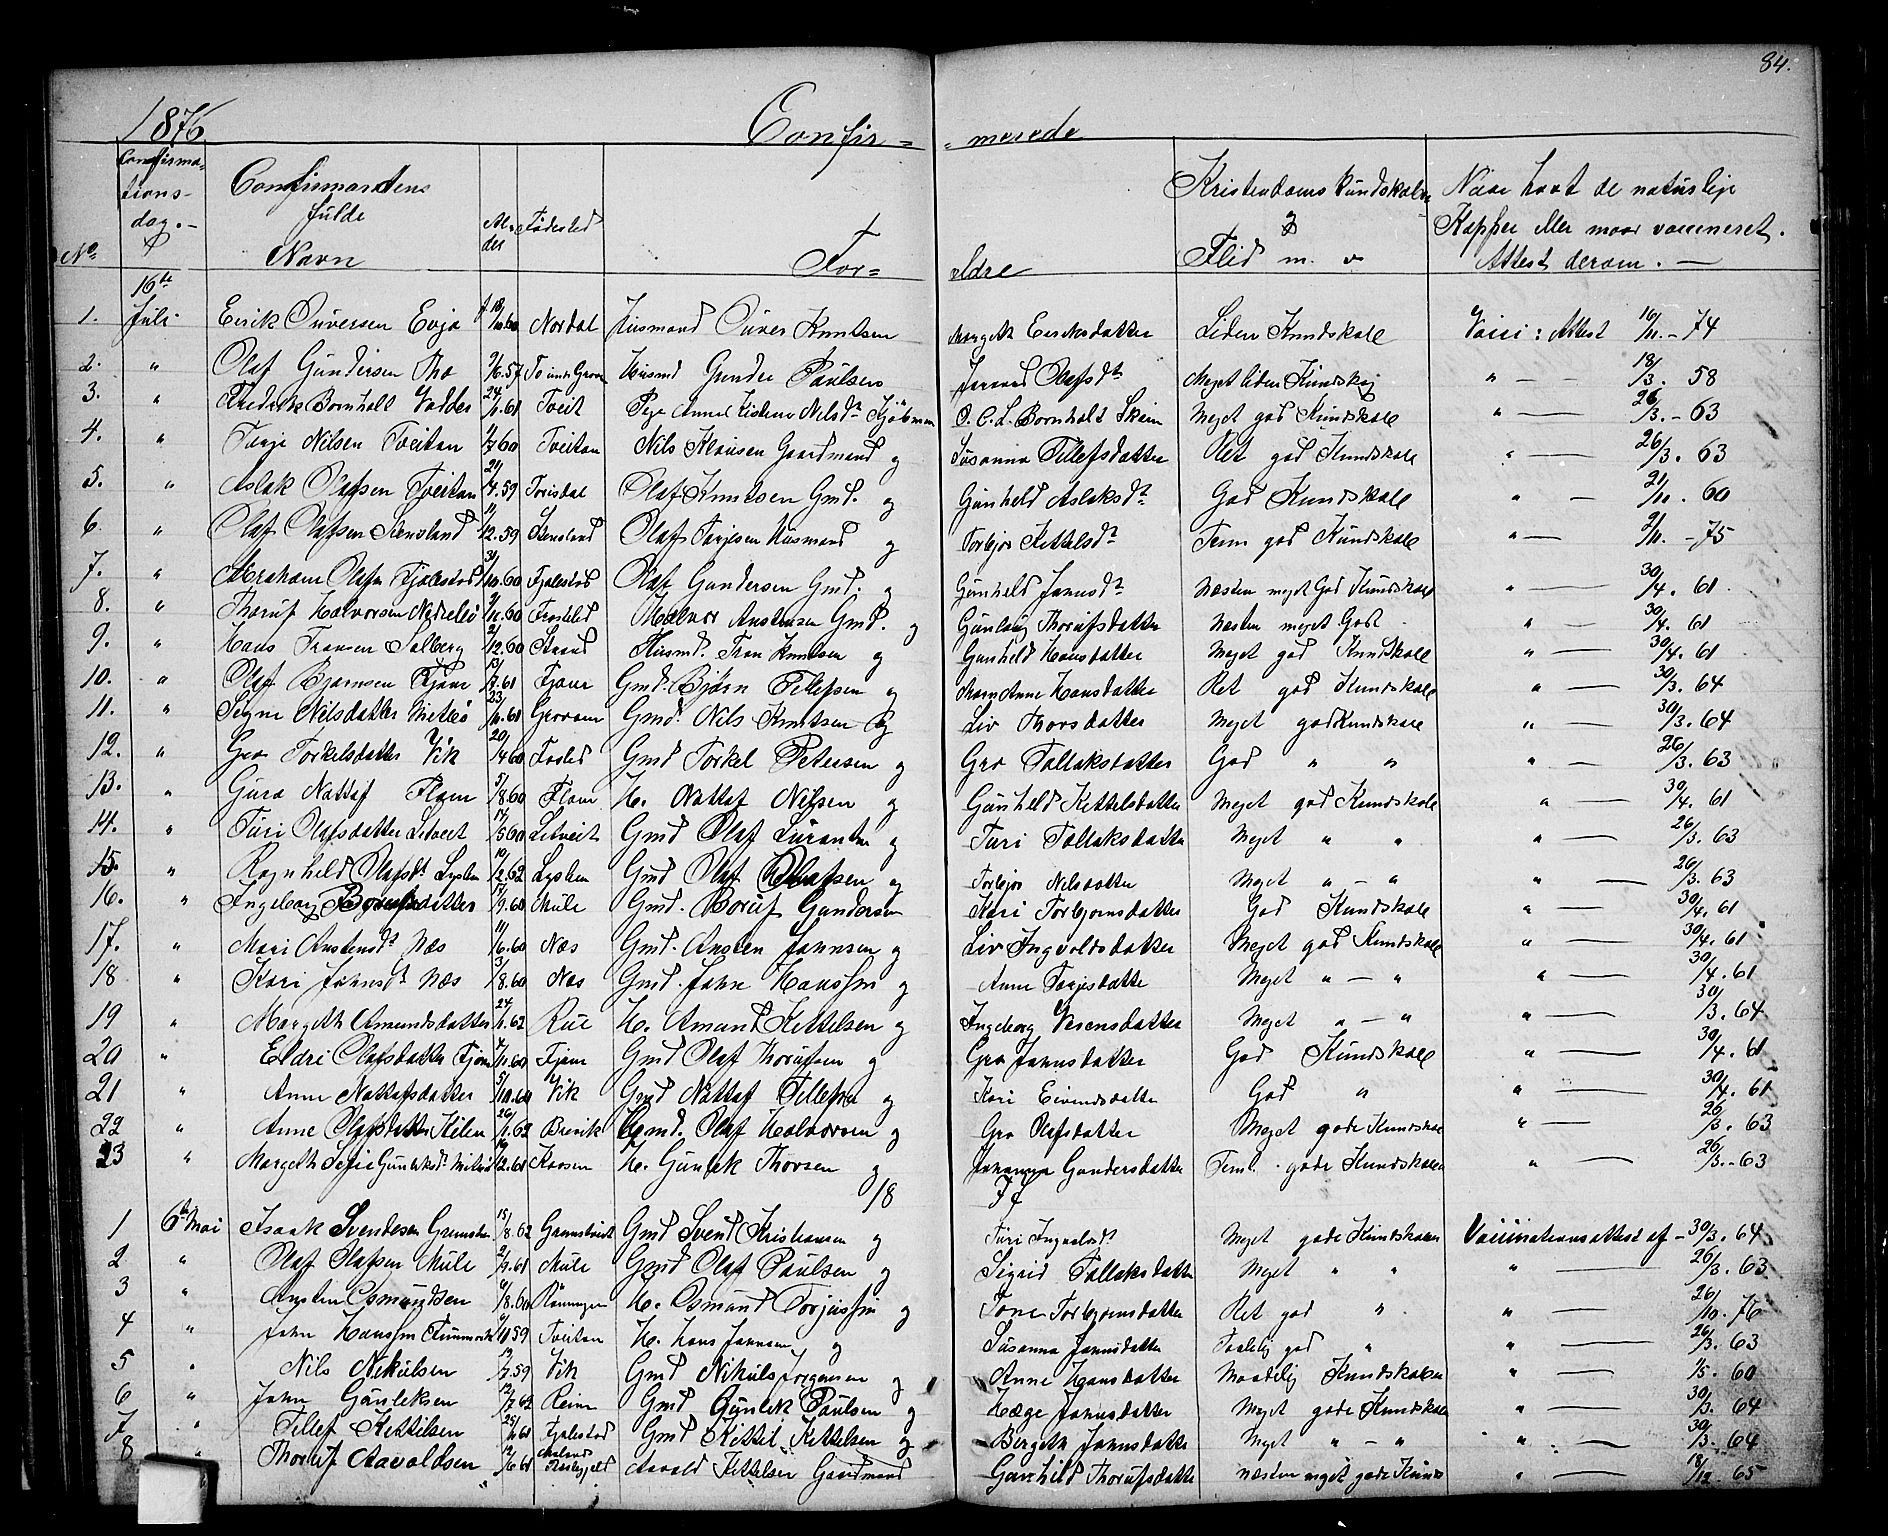 84.
1876 Confir= =merede
No Confirma-tions-dag.- Confirmandens fulde Navn Al-der Fødested For= ældre Kristendoms Kundskaber & Flid m. v Naar havt de naturlige Kopper eller naar vaccineret. Attest derom. —
16de
1. Juli Eerik Nordal Husmand Knutsen Margeth Eeriksdatter Liden Kundskab Vacci: Attest 16/11 - 74
2. " Olaf Gundersen 57 Husmd Gunder Paulsen Olafsdr Meget liden " — 18/3. 58
3. " Fredrik Bornholt 61 Tveit Pige Nilsdr Bornholt Skien Meget god Kundskab " — 26/3. - 63
4. " Tarje Nilsen Tveitan 60 Tveitan Nils Klausen Gaardmand og Susanna Tellefsdatter Ret god Kundskab " — 26/3. 63
5. " Aslak Olafsen Tveitan 59 Torisdal Olaf Knutsen Gmd. og Gunheld Aslaksdr God Kundskab " — 21/10. 60
6. " Olaf Olafsen Stensland 12.59 Stensland Olaf Tarjesen Husmand og Torbjør Kettelsdr Tem god Kundskab " — 2/11. - 75
7. " Abraham Olafsn Fjalestad 60 Fjalestad Olaf Gundersen Gmd. og Gunheld Næsten meget God Kundskab " — 30/4. 61
8. " Thoruf Halvorsen 60 Halvor Austensen Gmd. og Gunlaug Thorufsdatter Næsten meget Godt " — 30/4. 61
9. " Hans Fransen Solberg 12.60 Straand Husmd. Fran Knutsen og Gunheld Hansdatter Meget god Kundskab " — 30/4. 61
10. " Olaf Bjørnsen Fjane 7.61 Fjane Gmd. Bjørn Tellefsen og Maren Anne Hansdatter Ret god Kundskab " — 30/3. 64
11. " Signe Nilsdatter 61 Groven Gmd. Nils Knutsen og Liv Thorsdatter Meget god Kundskab " — 30/3. 64
12. " Gro Torkelsdatter Vik 20/4 60 Gmd Torkel Petersen og Gro Tallaksdatter God " " " — 26/3. 63
13. " Guro Nattaf Flom 5/8.60 Flom H. Nattaf Nilsen og Gunheld Kettelsdatter Meget god Kundskab " — 30/4. 61
14. " Turi Olafsdatter Letveit 5 60 Letveit Gmd Olaf og Turi Tallaksdatter Meget " " " — 26/3. 63
15. " Ragnheld Olafsdr 2.62 Gmd Olaf Olafsen og Torbjør Nilsdatter Meget " — " " — 26/3. 63
16. " Ingeborg Borufsdatter 9.60 Mule Gmd. Boruf Gundersen Kari Torbjørnsdatter God Kundskab " — 30/4. 61
17. " Mari Austensdr Næs 11/6.60 Næs Gmd. Austen Johnsen og Liv Ingvoldsdatter Meget god Kundskab " — 30/4. 61
18 " Kari Johnsdr Næs 3/8.60 Næs Gmd. John Hanssen og Anne Tarjesdatter Meget " — " " — 30/4. 61
19 " Margeth Amundsdatter 24/1.62 Rue H. Amund Kettelsen og Ingeborg Meget " — " " — 30/3. 64.
20 " Eldri Olafsdatter Fjane 60 Fjane Gmd Olaf Thorufsen og Gro Johnsdatter God Kundskab " — 30/4. 61
21 " Anne Nattafsdatter 5/10.60 Vik Gmd Nattaf Tellefsen og Kari Eivendsdatter God " " — 30/4. 61
22 " Anne Olafsdatter Kilen 26/1.62 Brevik Gmd. Olaf Halvorsen og Gro Olafsdatter Meget gode Kundskab " — 26/3. 63
23 " Margeth 2.61 H. Gunlek Thorsen og Johanna Gundersdatter Teml. gode Kundskaber " — 26/3. - 63
18 77
1 6te Mai Isaak Svendesen 15/8.62 Gmd Svend Kristiansen og Turi Meget gode Kundskaber Vaccinationsattest af - 30/3. 64
2 " Olaf Olafsen Mule 61 Mule Gmd Olaf Paulsen og Sigrid Tallaksdatter Meget " " " — 26/3. 63
3 " Austen Osmundsen 8.60 Rønningen H. Osmund og Tone Torbjørnsdatter Ret god " " — 26/10. 76
4 " John Hanssen 59 Tveitan H. Hans Johnsen og Susanna Johnsdatter Taalelig god " " — 26/3. 63
5 " Nils Nikulsen 7.59 Vik Gmd Nikuls Jørgensen og Anne Hansdatter Maadelig Kundskaber " — 1/5. 60
6 " John Gunleksen 12/7 62 Reine Gmd Gunlek Paulsen og Hæge Johnsdatter Meget gode Kundskab " — 30/3. 64
7 " Tellef Kettilsen 25/ 61 Fjalestad Gmd Kettil Kettelsen og Bergeth Johnsdatter Meget " — " " — 30/3. 64
8 " Thoruf Aavoldsen 12/6 61 Aavold Kettelsen Gaardmand Gunhild Thorufsdatter næsten meget gode Kunds " — 18/12 65